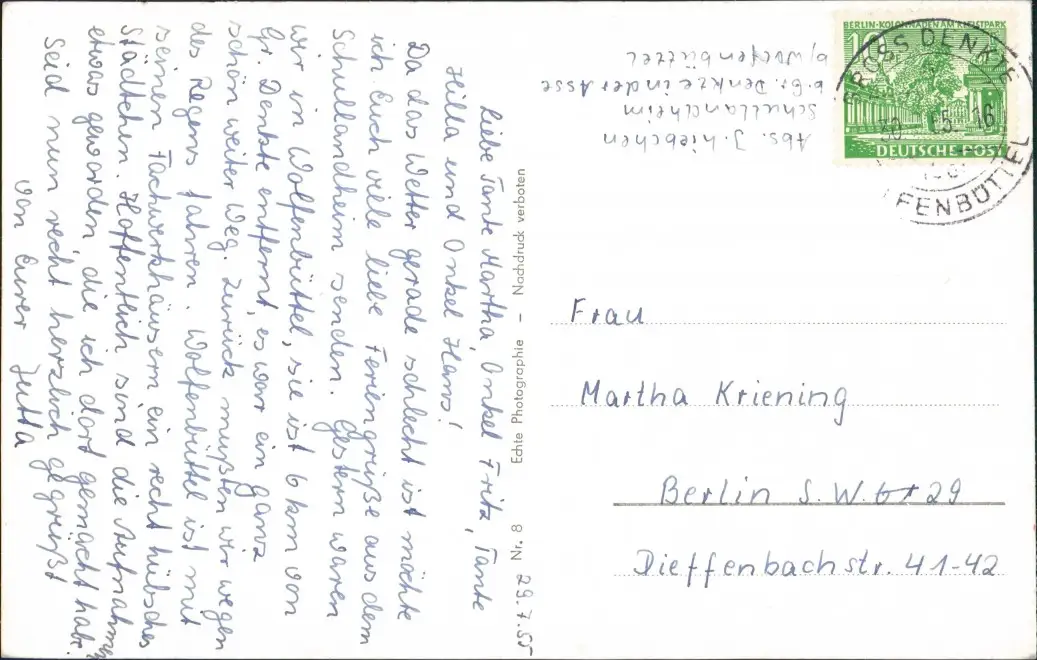 29.7.55
Liebe Tante Martha, Onkel Fritz, Tante
Hilla und Onkel Hans!
Da das Wetter gerade schlecht ist möchte
ich Euch viele liebe Feriengrüße aus dem
Schullandheim senden. Gestern waren
wir in Wolfenbüttel, sie ist 6 km von
Gr. Denkte entfernt, es war ein ganz
schön weiter Weg. Zurück mußten wir wegen
des Regens fahren. Wolfenbüttel ist mit
seinen Fachwerkhäusern ein recht hübsches
Städtchen. Hoffentlich sind die Aufnahmen
etwas geworden, die ich dort gemacht hab.
Seid nun recht herzlich gegrüßt
von Eurer Jutta
Nr. 8 Echte Photographie - Nachdruck verboten
Abs. J. Liebchen
Schullandheim
b. Gr. Denkte in der Asse
b/ Wolfenbüttel
BERLIN-KOLONNADEN AM KLEISTPARK
10
DEUTSCHE POST
GROSS DENKTE
30 5 16
FENBÜTTEL
Frau
Martha Kriening
Berlin S.W. 29
Dieffenbachstr. 41-42